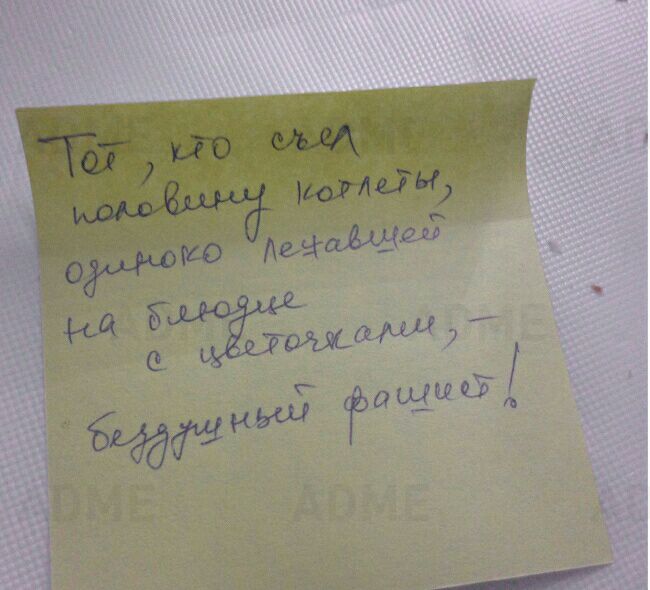 Тот, кто съел
половину котлеты,
одиноко лежавшей
на блюдце
с цветочками, –
бездушный фашист!
ADME
ADME
ADME
ADME
ADME